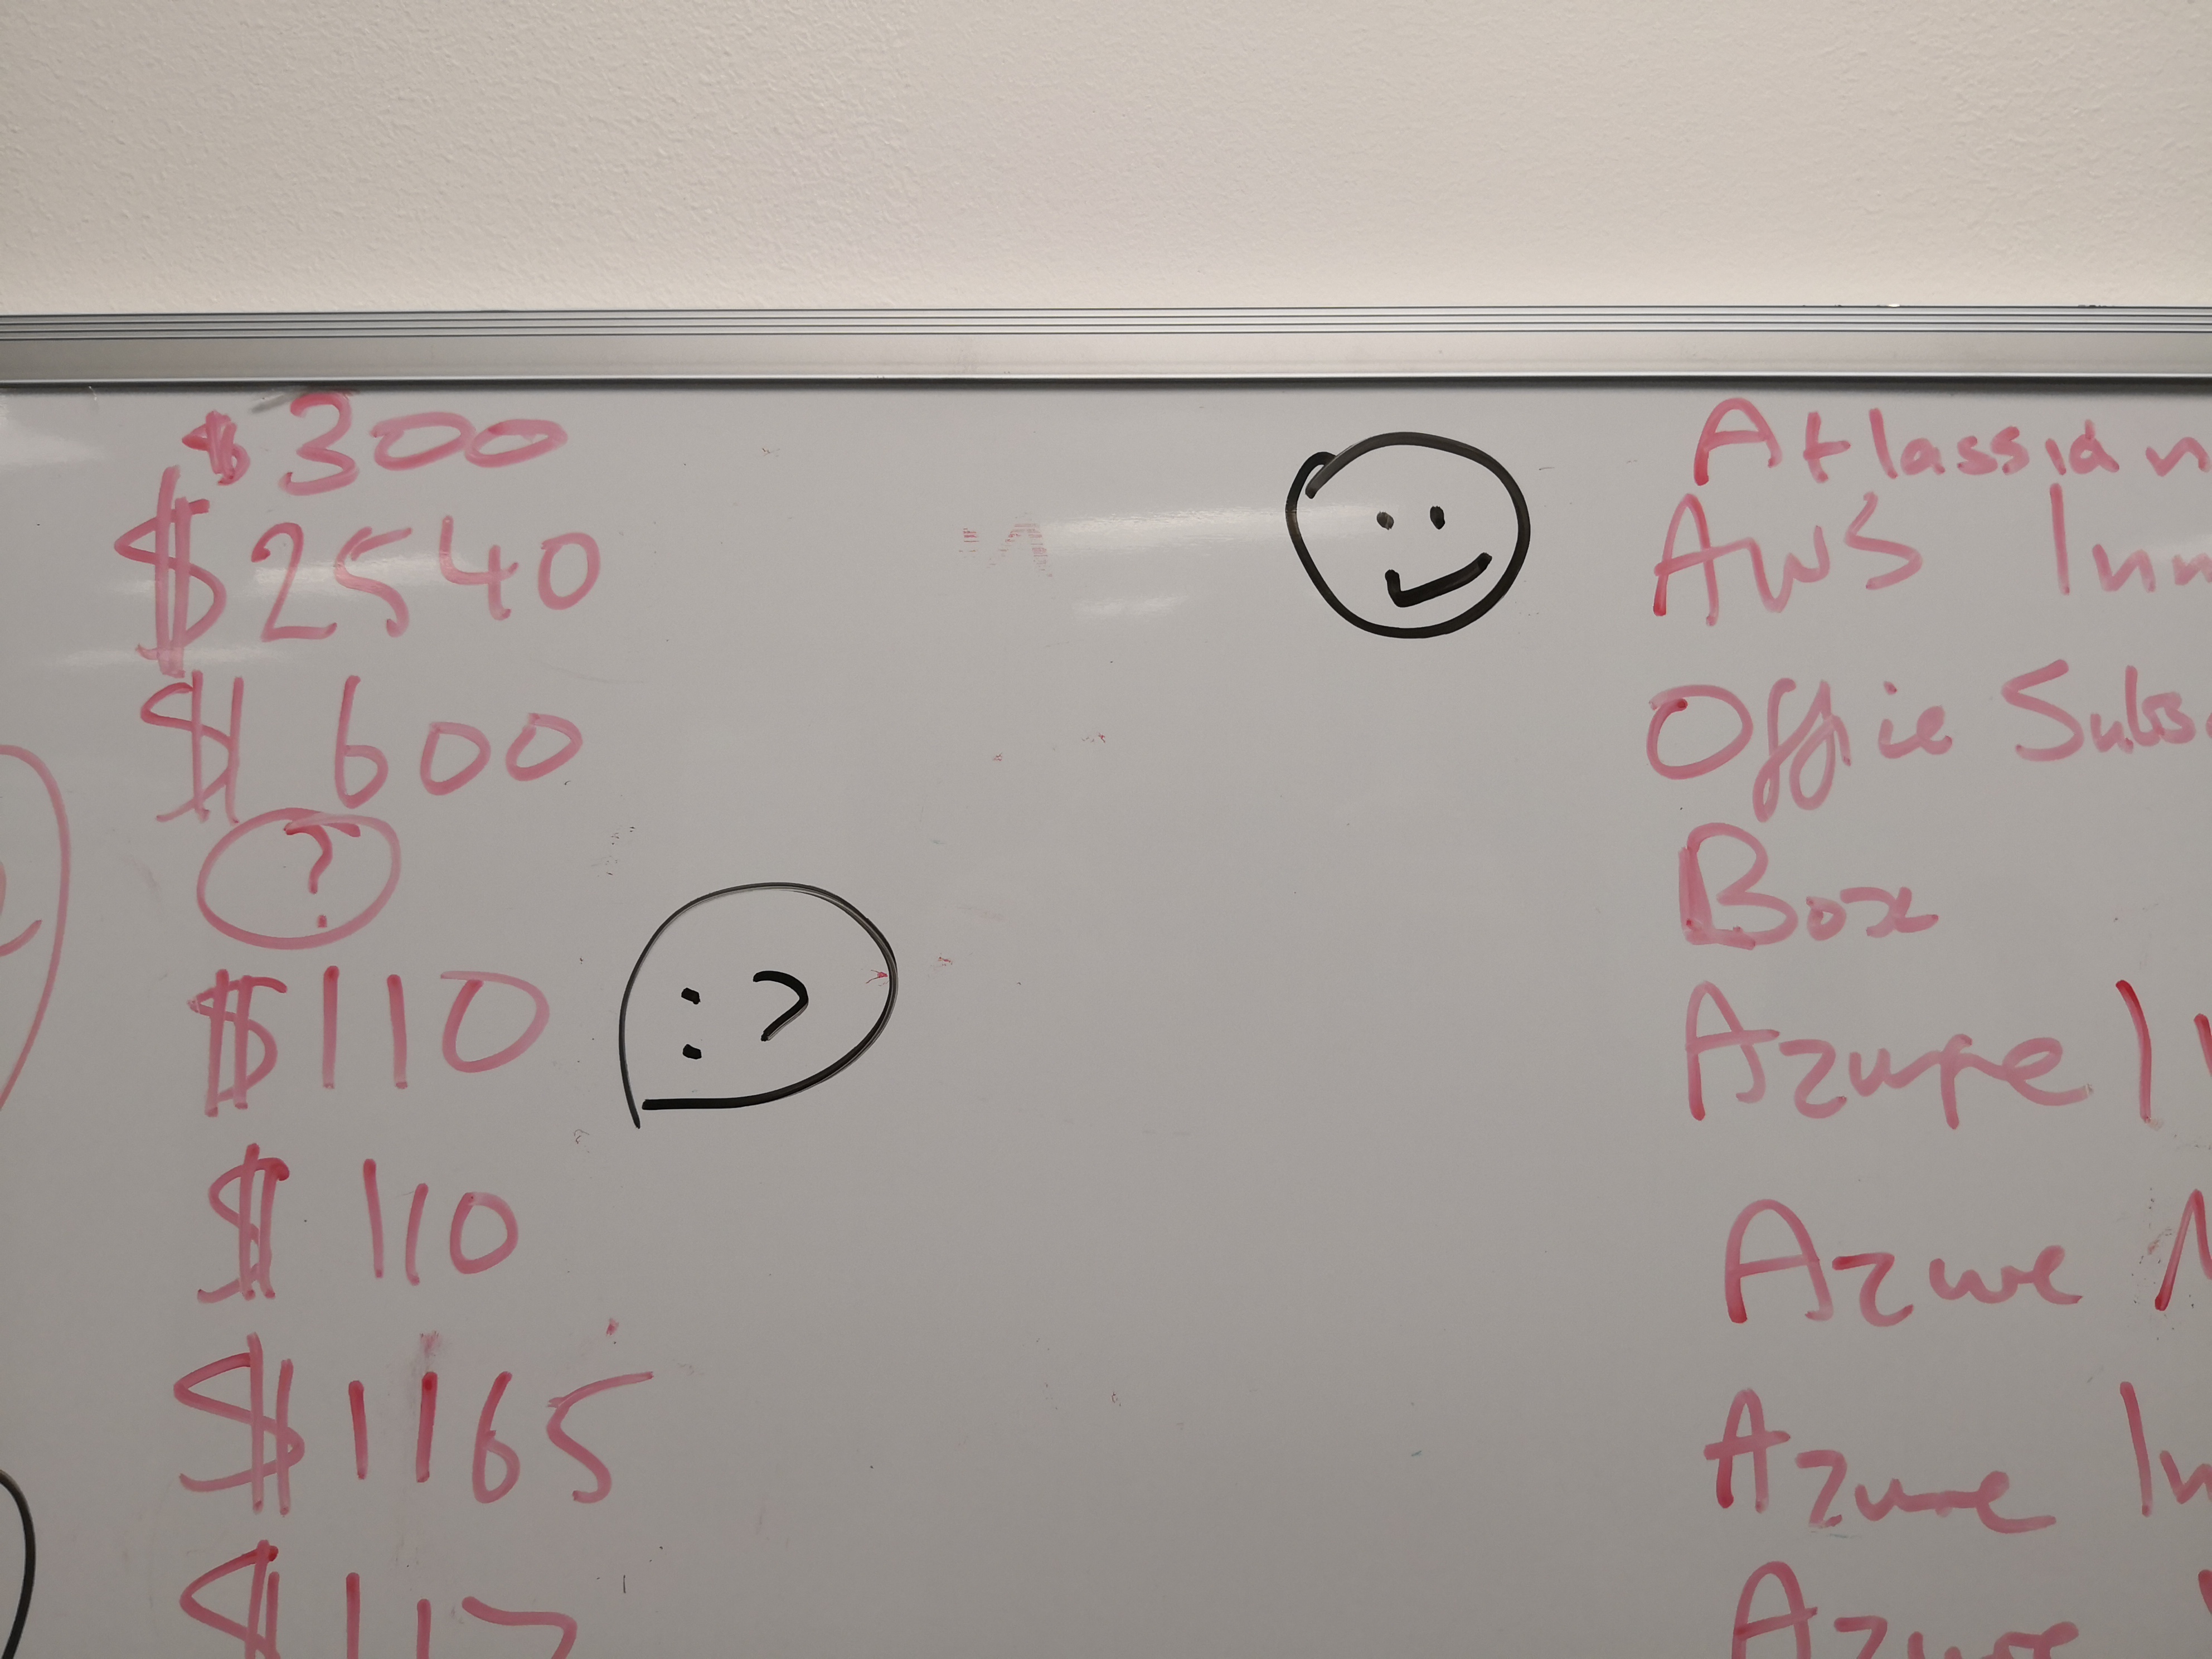 $300
$2540
$600
?
$110
$110
$1165
Atlassian
AWS
Offie
Box
Azure
Azure
Azure
Azure